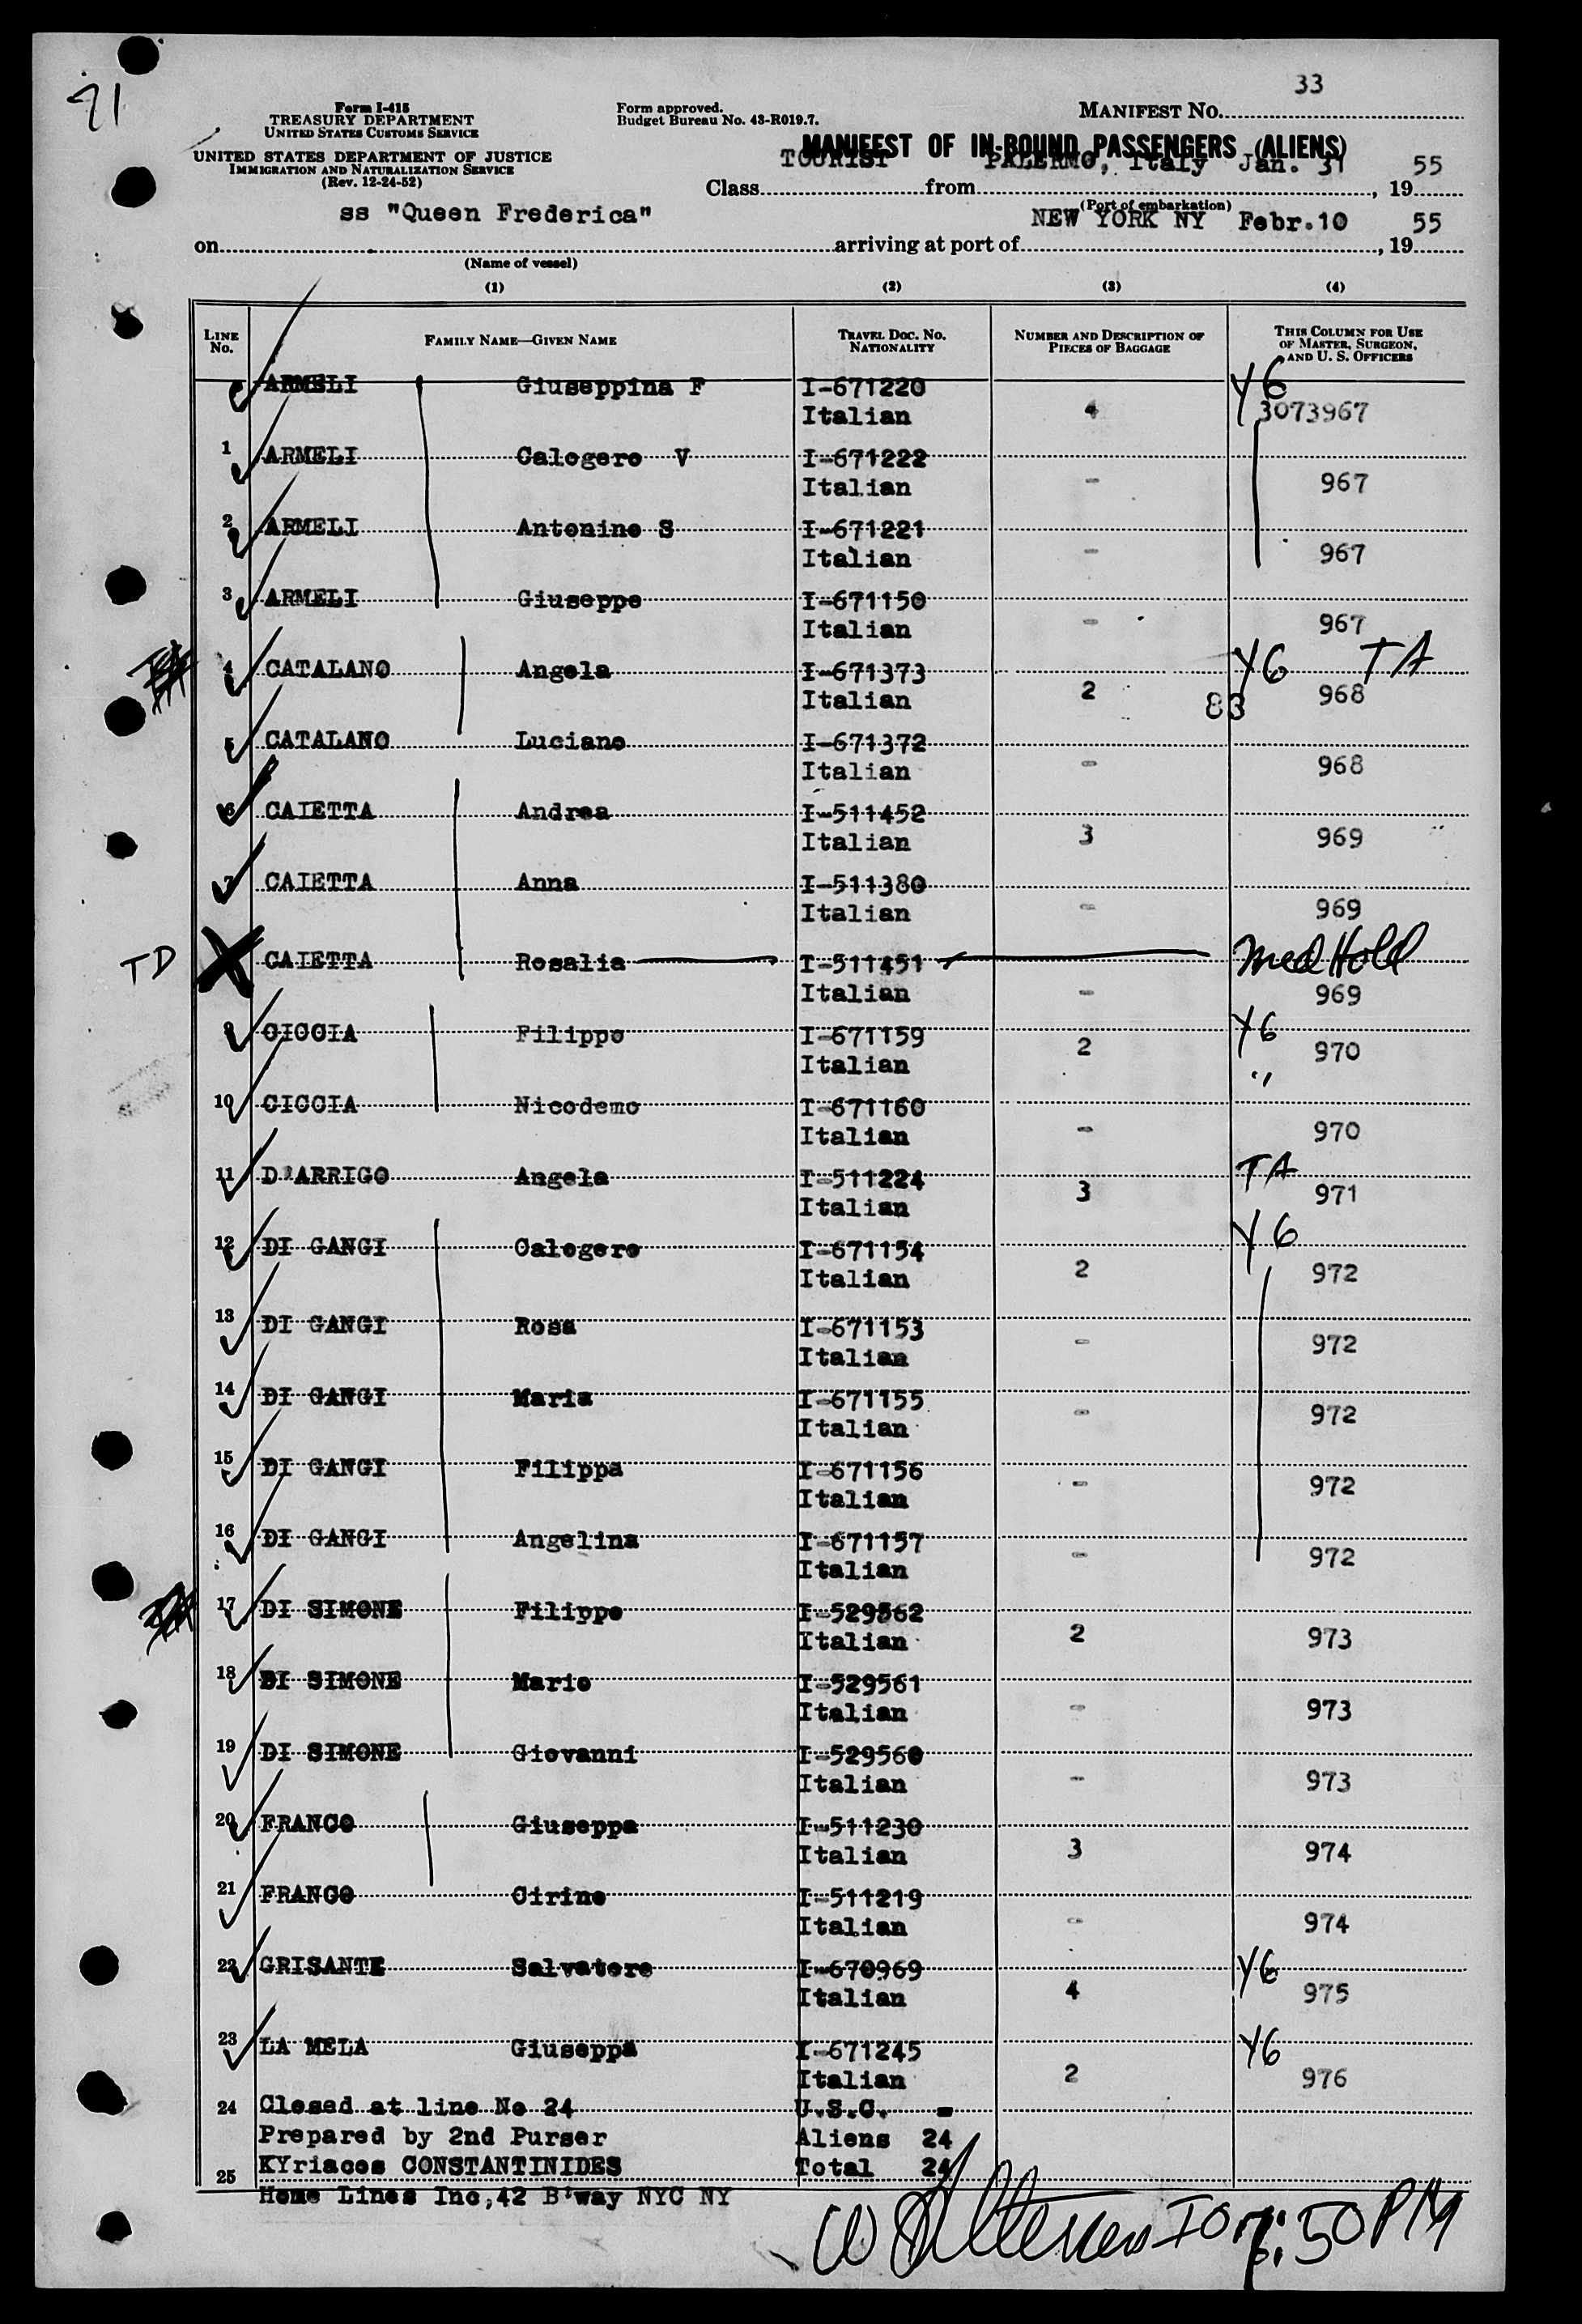 91
33
Form I-415
TREASURY DEPARTMENT
UNITED STATES CUSTOMS SERVICE
Form approved.
Budget Bureau No. 43-R019.7.
MANIFEST No.
UNITED STATES DEPARTMENT OF JUSTICE
IMMIGRATION AND NATURALIZATION SERVICE
(Rev. 12-24-52)
MANIFEST OF IN-BOUND PASSENGERS (ALIENS)
TOURIST PALERMO, Italy Jan. 31 55
Class from , 19
(Port of embarkation)
ss "Queen Frederica" NEW YORK NY Febr.10 55
on arriving at port of , 19
(Name of vessel)
(1) (2) (3) (4)
LINE No. FAMILY NAME—GIVEN NAME TRAVEL DOC. No. NATIONALITY NUMBER AND DESCRIPTION OF PIECES OF BAGGAGE THIS COLUMN FOR USE OF MASTER, SURGEON, AND U. S. OFFICERS
ARMELI Giuseppina F I-671220 Y6
Italian 4 3073967
1 ARMELI Calogero V I-671222
Italian - 967
2 ARMELI Antonino S I-671221
Italian - 967
3 ARMELI Giuseppe I-671150
Italian - 967
4 CATALANO Angela I-671373 Y6 TA
Italian 2 83 968
5 CATALANO Luciano I-671372
Italian - 968
6 CAIETTA Andrea I-511452
Italian 3 969
7 CAIETTA Anna I-511380
Italian - 969
TD X CAIETTA Rosalia I-511451 Med Hold
Italian - 969
9 CICCIA Filippo I-671159 Y6
Italian 2 970
"
10 CICCIA Nicodemo I-671160
Italian - 970
11 D'ARRIGO Angela I-511224 TA
Italian 3 971
12 DI GANGI Calogero I-671154 Y6
Italian 2 972
13 DI GANGI Rosa I-671153
Italian - 972
14 DI GANGI Maria I-671155
Italian - 972
15 DI GANGI Filippa I-671156
Italian - 972
16 DI GANGI Angelina I-671157
Italian - 972
17 DI SIMONE Filippo I-529562
Italian 2 973
18 DI SIMONE Mario I-529561
Italian - 973
19 DI SIMONE Giovanni I-529560
Italian - 973
20 FRANCO Giuseppa I-511230
Italian 3 974
21 FRANCO Cirino I-511219
Italian - 974
22 GRISANTE Salvatore I-670969 Y6
Italian 4 975
23 LA MELA Giuseppa I-671245 Y6
Italian 2 976
24 Closed at line No 24 U.S.C. -
Prepared by 2nd Purser Aliens 24
25 KYriacos CONSTANTINIDES Total 24
Home Lines Inc,42 B'way NYC NY
:50 PM